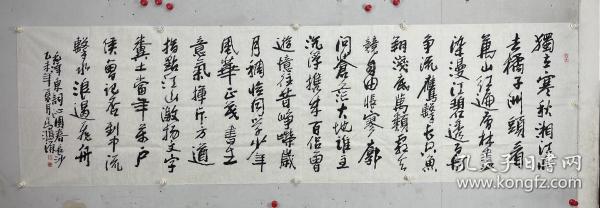 獨立寒秋湘江北
去橘子洲頭看
萬山紅遍層林盡
染漫江碧透百舸
争流鷹擊長空魚
翔淺底萬類霜天
競自由悵寥廓
問蒼茫大地誰主
沉浮攜來百侣曾
遊憶往昔崢嶸歲
月稠恰同學少年
風華正茂書生
意氣揮斥方遒
指點江山激揚文字
糞土當年萬户
侯曾記否到中流
擊水浪遏飛舟
毛澤東詞沁園春長沙
乙未年夏月
孔夫子旧书网
www.kongfz.com